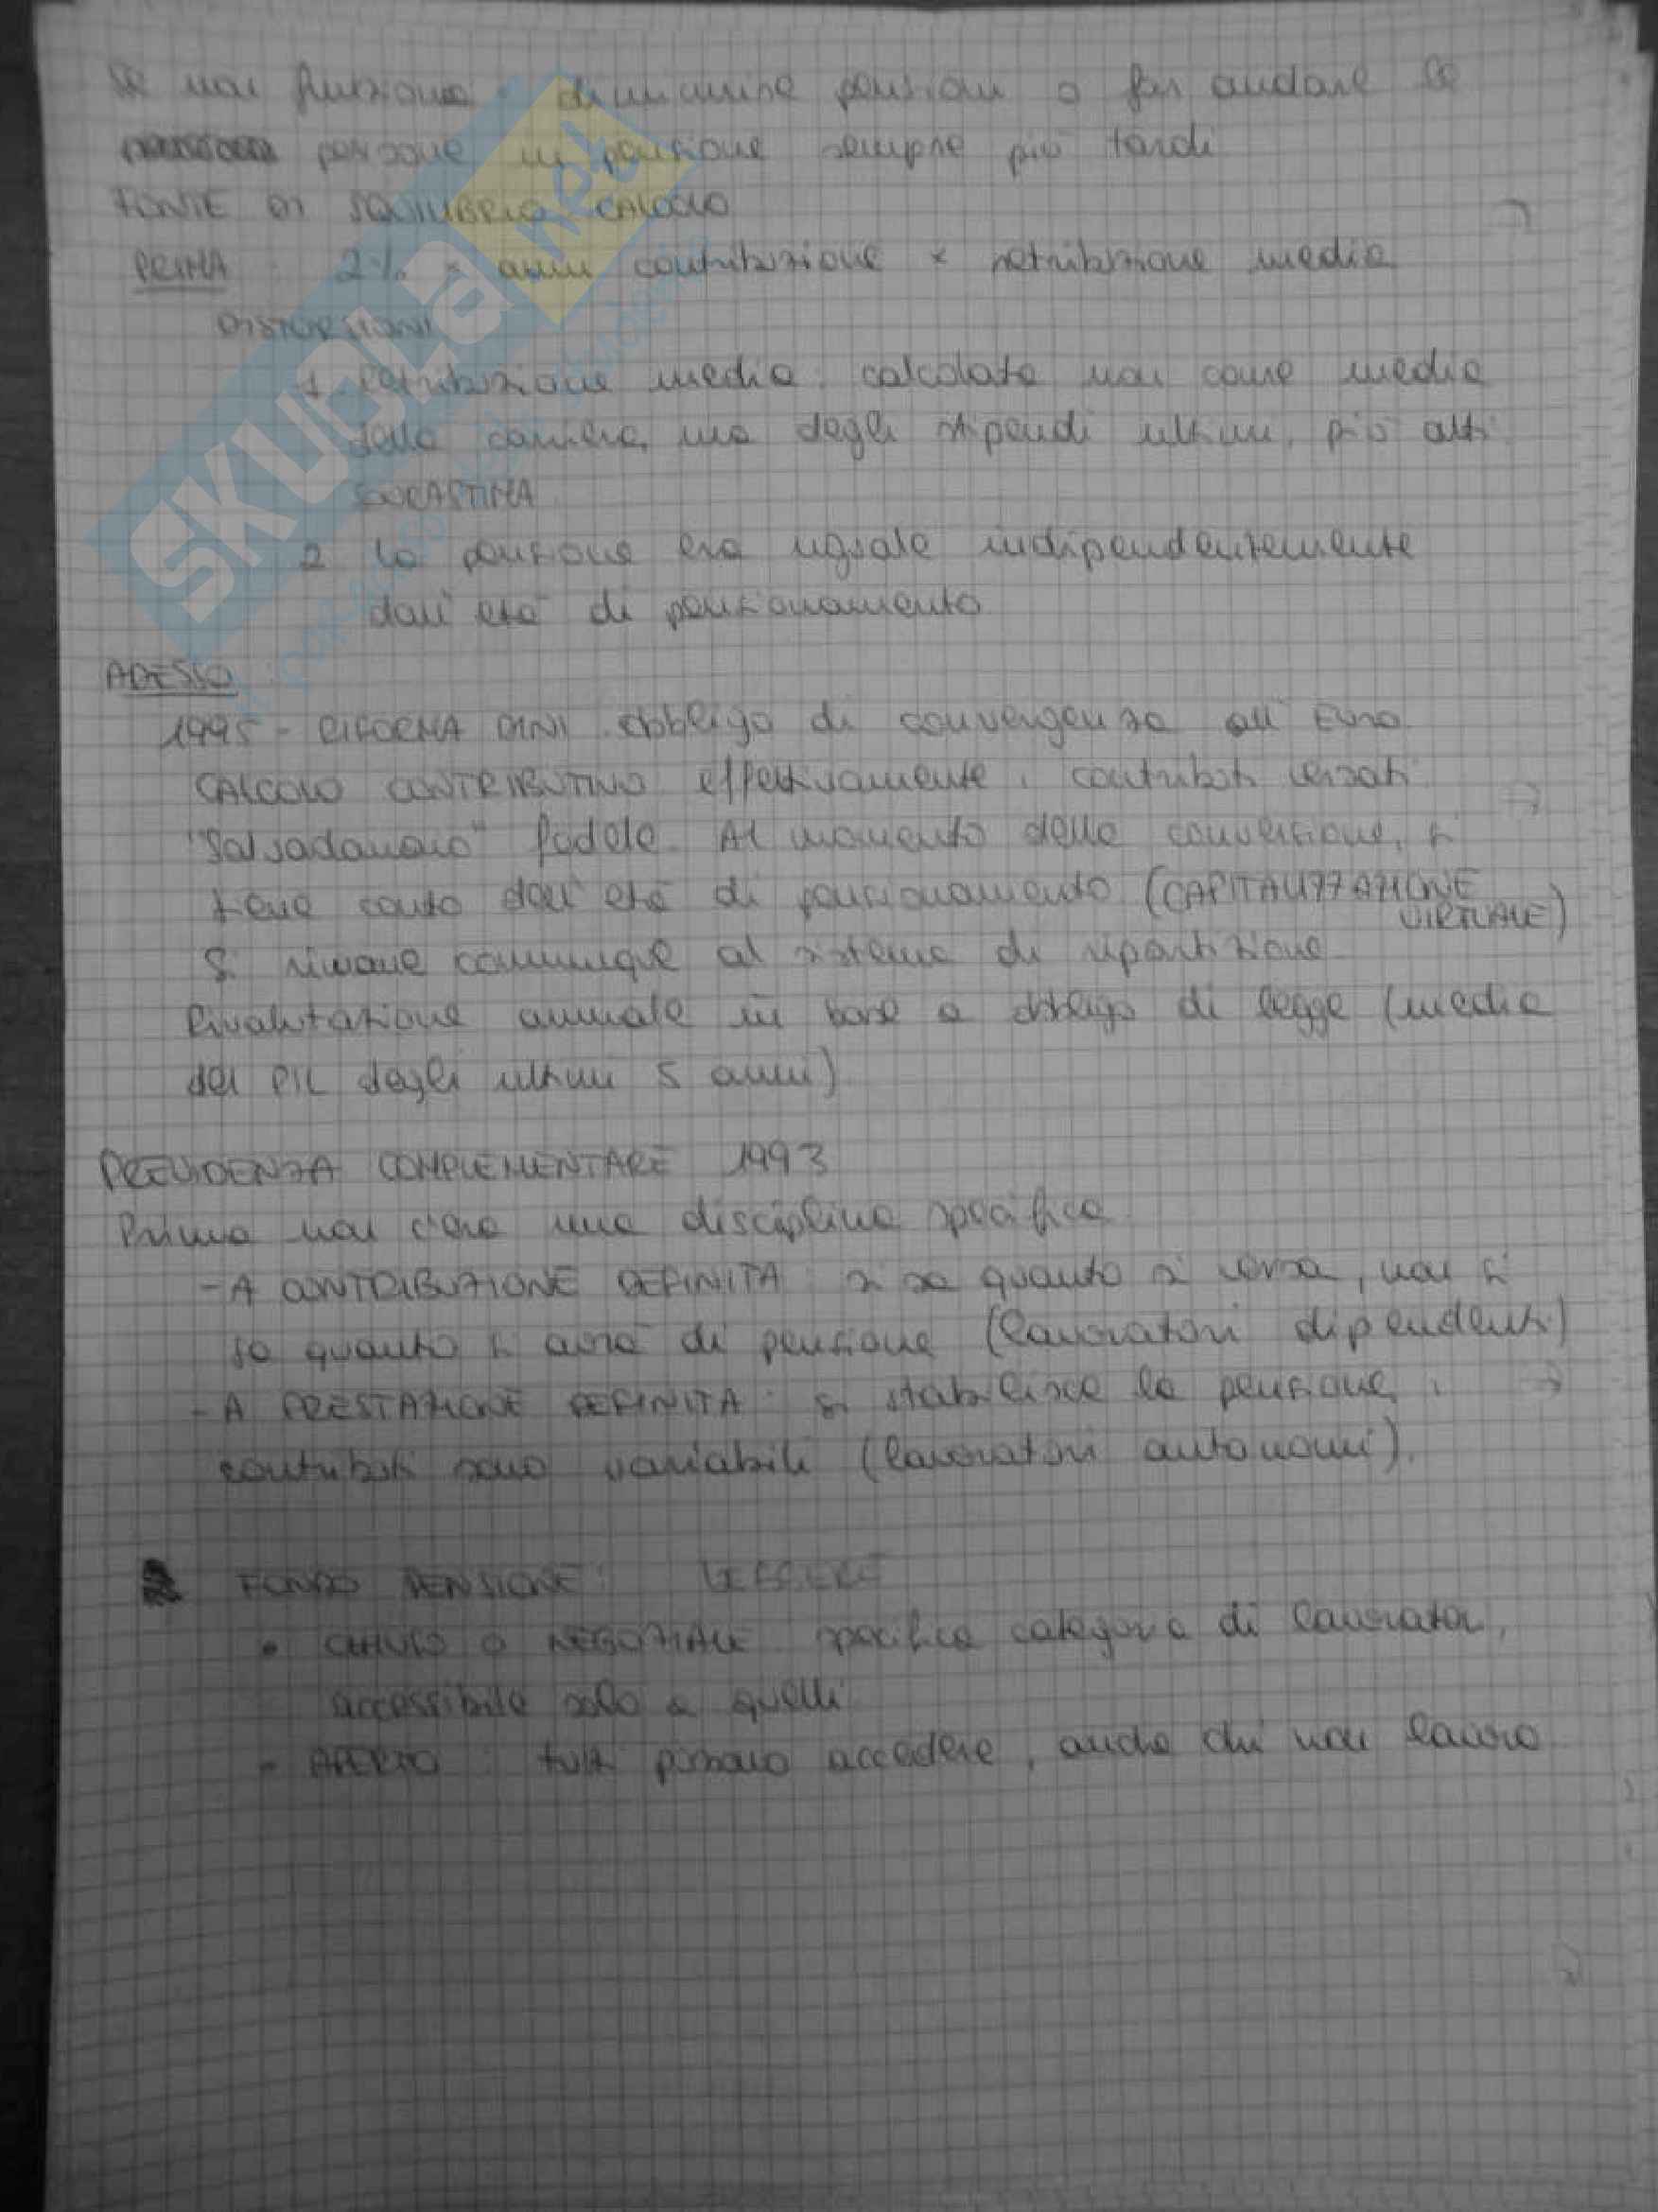 Se non funziona: diminuire pensioni o far andare le
persone in pensione sempre più tardi
FONTE DI SQUILIBRIO: CALCOLO
PRIMA: 2% × anni contribuzione × retribuzione media
DISTORSIONI
1. Retribuzione media: calcolata non come media
della carriera, ma degli stipendi ultimi, più alti
SOVRASTIMA
2. la pensione era uguale indipendentemente
dall'età di pensionamento
ADESSO:
1995 - RIFORMA DINI: obbligo di convergenza all'Euro
CALCOLO CONTRIBUTIVO effettivamente i contributi versati
"Salvadanaio" fedele. Al momento della conversione, si
tiene conto dell'età di pensionamento (CAPITALIZZAZIONE
VIRTUALE)
Si rimane comunque al sistema di ripartizione
Rivalutazione annuale in base a obbligo di legge (media
del PIL degli ultimi 5 anni)
PREVIDENZA COMPLEMENTARE 1993
Prima non c'era una disciplina specifica
- A CONTRIBUZIONE DEFINITA: si sa quanto si versa, non si
sa quanto si avrà di pensione (lavoratori dipendenti)
- A PRESTAZIONE DEFINITA: si stabilisce la pensione, i
contributi sono variabili (lavoratori autonomi).
FONDO PENSIONE: LEGGERE
• CHIUSO O NEGOZIALE specifica categoria di lavoratori,
accessibile solo a quelli
- APERTO: tutti possono accedere, anche chi non lavora
SKUOLA.net